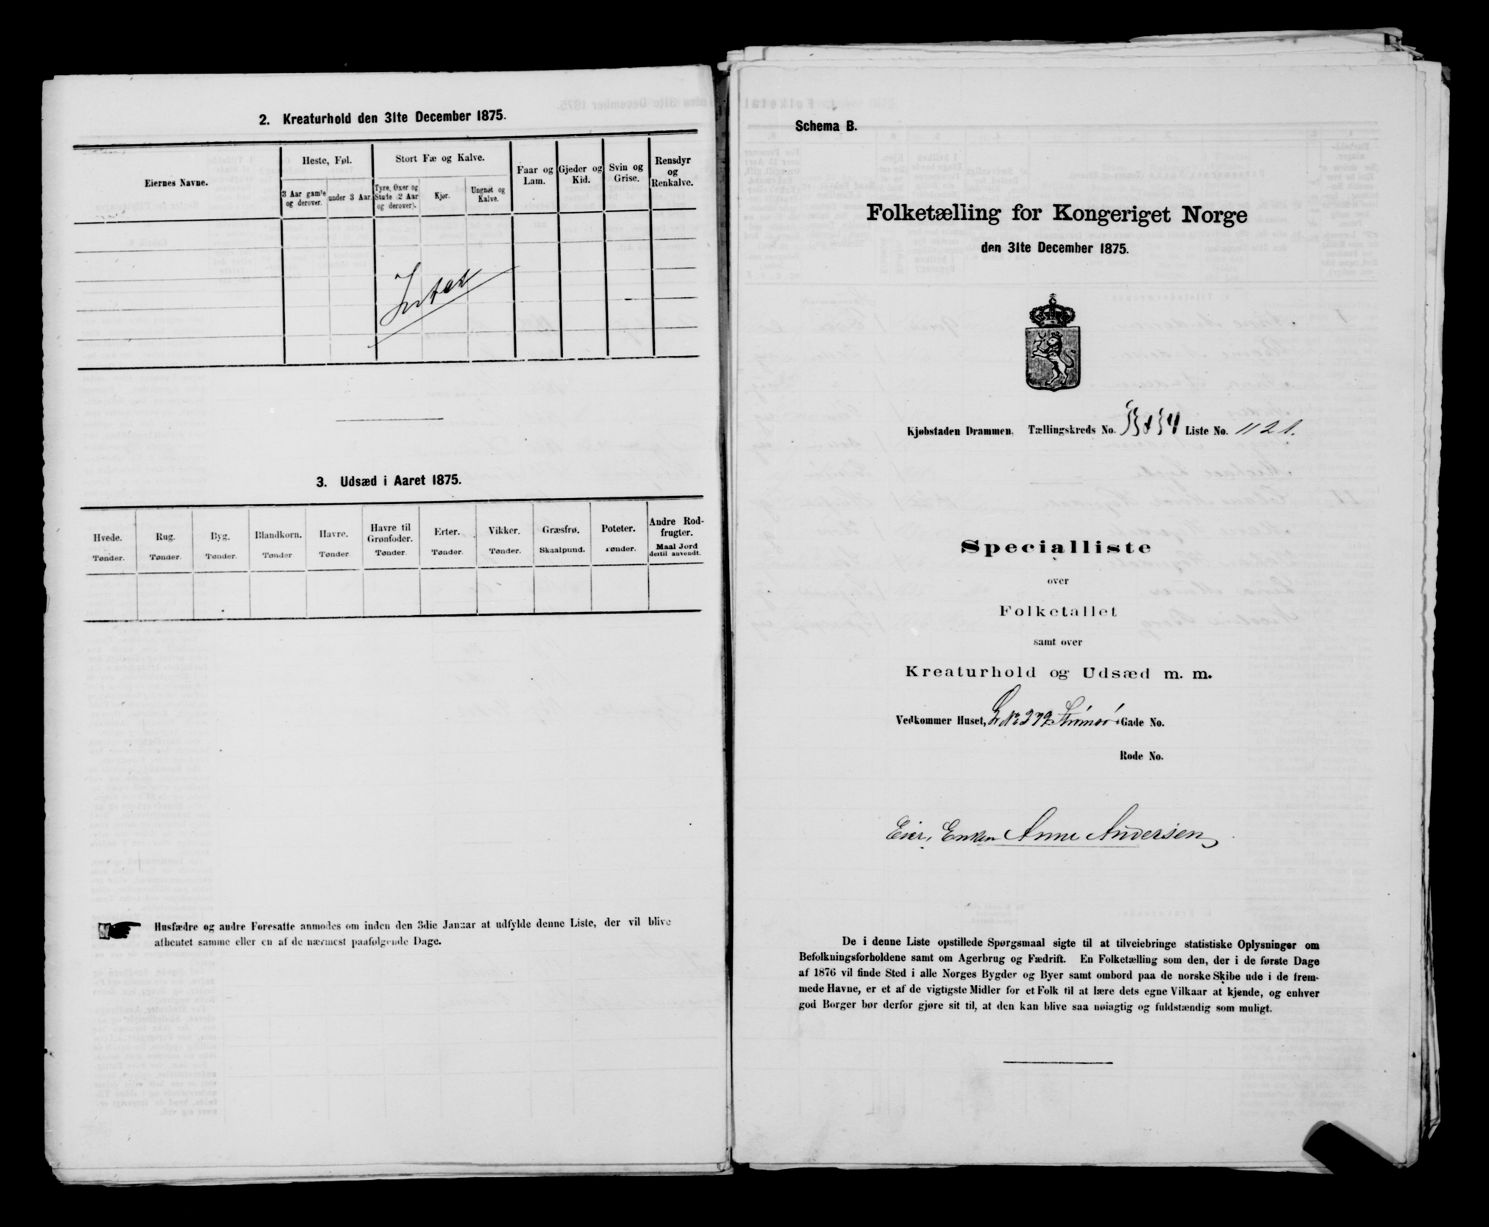 2. Kreaturhold den 31te December 1875.
Eiernes Navne.
Heste, Føl.
Stort Fæ og Kalve.
Faar og Lam.
Gjeder og Kid.
Svin og Grise.
Rensdyr og Renkalve.
3 Aar gamle og derover.
under 3 Aar.
Tyre, Oxer og Stude (2 Aar og derover).
Kjør.
Ungnøt og Kalve.
Intet
3. Udsæd i Aaret 1875.
Hvede. Rug. Byg. Blandkorn. Havre. Havre til Grønfoder. Erter. Vikker. Græsfrø. Poteter. Andre Rodfrugter.
Tønder. Tønder. Tønder. Tønder Tønder Tønder. Tønder. Tønder. Skaalpund. Tønder. Maal Jord dertil anvendt.
Husfædre og andre Foresatte anmodes om inden den 3die Januar at udfylde denne Liste, der vil blive
afhentet samme eller en af de nærmest paafølgende Dage.
Schema B.
Folketælling for Kongeriget Norge
den 31te December 1875.
Kjøbstaden Drammen. Tællingskreds No. Liste No. 1121.
Specialliste
over
Folketallet
samt over
Kreaturhold og Udsæd m. m.
Vedkommer Huset, Strømsø Gade No.
Rode No.
Eier, Enken Anne Andersen
De i denne Liste opstillede Spørgsmaal sigte til at tilveiebringe statistiske Oplysninger om
Befolkningsforholdene samt om Agerbrug og Fædrift. En Folketælling som den, der i de første Dage
af 1876 vil finde Sted i alle Norges Bygder og Byer samt ombord paa de norske Skibe ude i de frem-
mede Havne, er et af de vigtigste Midler for et Folk til at lære dets egne Vilkaar at kjende, og enhver
god Borger bør derfor gjøre sit til, at den kan blive saa nøiagtig og fuldstændig som muligt.